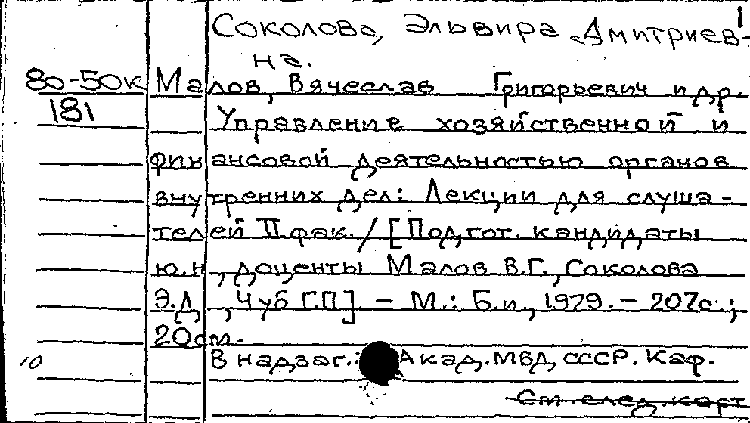 1
Соколова, Эльвира Дмитриев-
на.
80-50к Малов, Вячеслав Григорьевич и др.
181 Управление хозяйственной и
финансовой деятельностью органов
внутренних дел: Лекции для слуша-
телей II фак. / [Подгот. кандидаты
ю.н., доценты Малов В.Г., Соколова
Э.Д., Чуб Г.П] - М.: Б.и, 1979. - 207с.;
20см.
10 В надзаг.: Акад. МВД СССР. Каф.
См след. карт